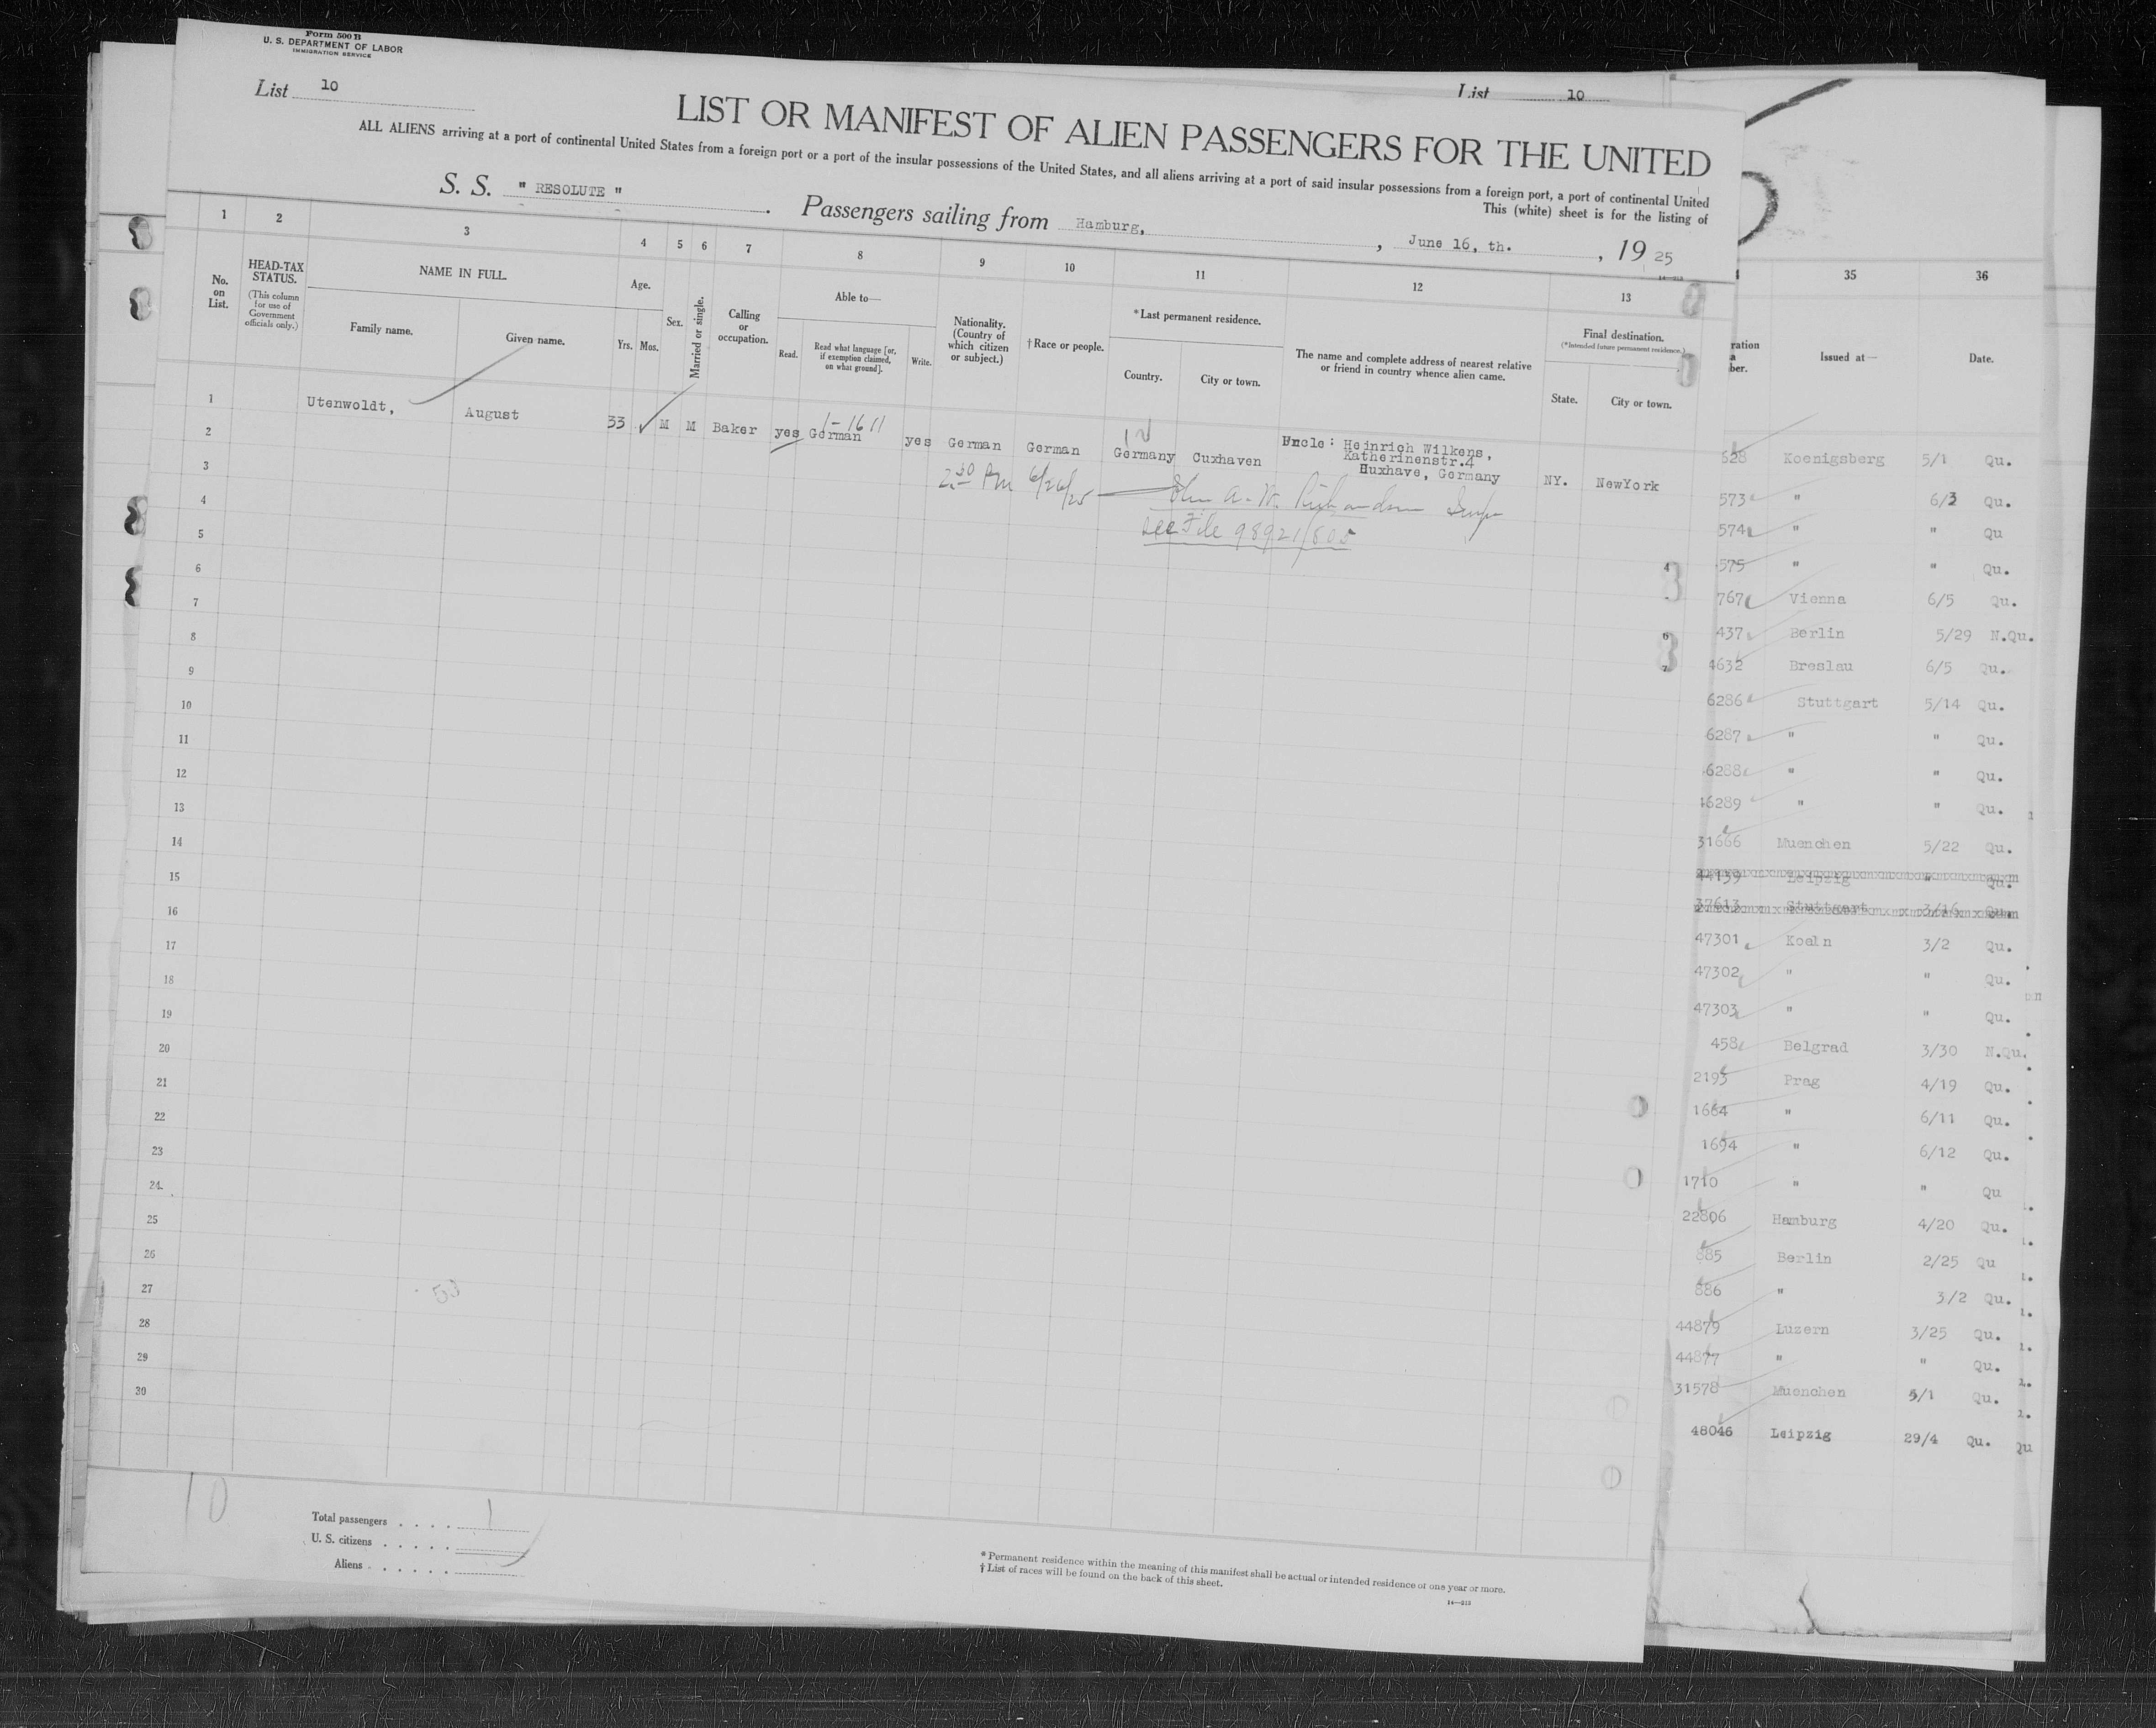 Form 500 B
U. S. DEPARTMENT OF LABOR
IMMIGRATION SERVICE
List 10
List 10
LIST OR MANIFEST OF ALIEN PASSENGERS FOR THE UNITED
ALL ALIENS arriving at a port of continental United States from a foreign port or a port of the insular possessions of the United States, and all aliens arriving at a port of said insular possessions from a foreign port, a port of continental United
This (white) sheet is for the listing of
S. S. " RESOLUTE " . Passengers sailing from Hamburg, , June 16, th. , 19 25
14—313
1 2 3 4 5 6 7 8 9 10 11 12 13
No. on List.
HEAD-TAX STATUS.
(This column for use of Government officials only.)
NAME IN FULL.
Family name.
Given name.
Age.
Yrs. Mos.
Sex.
Married or single.
Calling or occupation.
Able to—
Read.
Read what language [or, if exemption claimed, on what ground].
Write.
Nationality. (Country of which citizen or subject.)
†Race or people.
*Last permanent residence.
Country.
City or town.
The name and complete address of nearest relative or friend in country whence alien came.
Final destination.
(*Intended future permanent residence.)
State.
City or town.
1 Utenwoldt, August 33 M M Baker yes German yes German German Germany Cuxhaven Uncle: Heinrich Wilkens,
Katherinenstr.4
Huxhave, Germany NY. NewYork
1-1611
2 30 PM 6/26/25 John A. W. Richardson Insp
See File 98921/805
2
3
4
5
6
7
8
9
10
11
12
13
14
15
16
17
18
19
20
21
22
23
24
25
26
27
28
29
30
53
10
Total passengers . . . . 1
U. S. citizens . . . . .
Aliens . . . . . .
* Permanent residence within the meaning of this manifest shall be actual or intended residence of one year or more.
† List of races will be found on the back of this sheet.
14—313
35 36
ration
a
ber.
Issued at—
Date.
628 Koenigsberg 5/1 Qu.
573 " 6/3 Qu.
574 " " Qu
575 " " Qu.
767 Vienna 6/5 Qu.
437 Berlin 5/29 N.Qu.
4632 Breslau 6/5 Qu.
6286 Stuttgart 5/14 Qu.
6287 " " Qu.
6288 " " Qu.
46289 " " Qu.
31666 Muenchen 5/22 Qu.
44139 Leipzig " Qu.
37613 Stuttgart 3/16 Qu.
47301 Koeln 3/2 Qu.
47302 " " Qu.
47303 " " Qu.
458 Belgrad 3/30 N.Qu.
2193 Prag 4/19 Qu.
1664 " 6/11 Qu.
1694 " 6/12 Qu.
1710 " " Qu
22806 Hamburg 4/20 Qu.
885 Berlin 2/25 Qu
886 " 3/2 Qu.
44879 Luzern 3/25 Qu.
44877 " " Qu.
31578 Muenchen 5/1 Qu.
48046 Leipzig 29/4 Qu. Qu